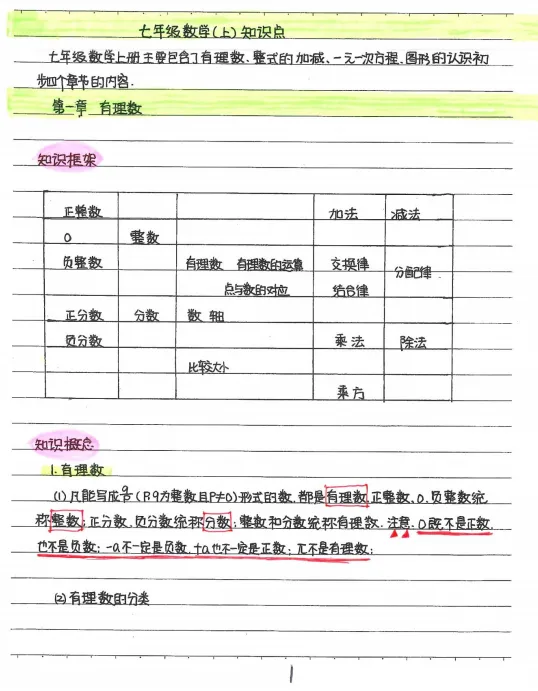 七年级数学(上)知识点
七年级数学上册主要包含了有理数、整式的加减、一元一次方程、图形的认识初
步四个章节的内容.
第一章 有理数
知识框架
正整数 加法 减法
0 整数
负整数 有理数 有理数的运算 交换律 分配律
点与数的对应 结合律
正分数 分数 数轴
负分数 乘法 除法
比较大小
乘方
知识概念
1.有理数
(1)凡能写成q/p(p,q为整数且p≠0)形式的数,都是有理数,正整数、0、负整数统
称整数;正分数、负分数统称分数;整数和分数统称有理数.注意:0既不是正数,
也不是负数;-a不一定是负数,+a也不一定是正数;π不是有理数;
(2)有理数的分类
1